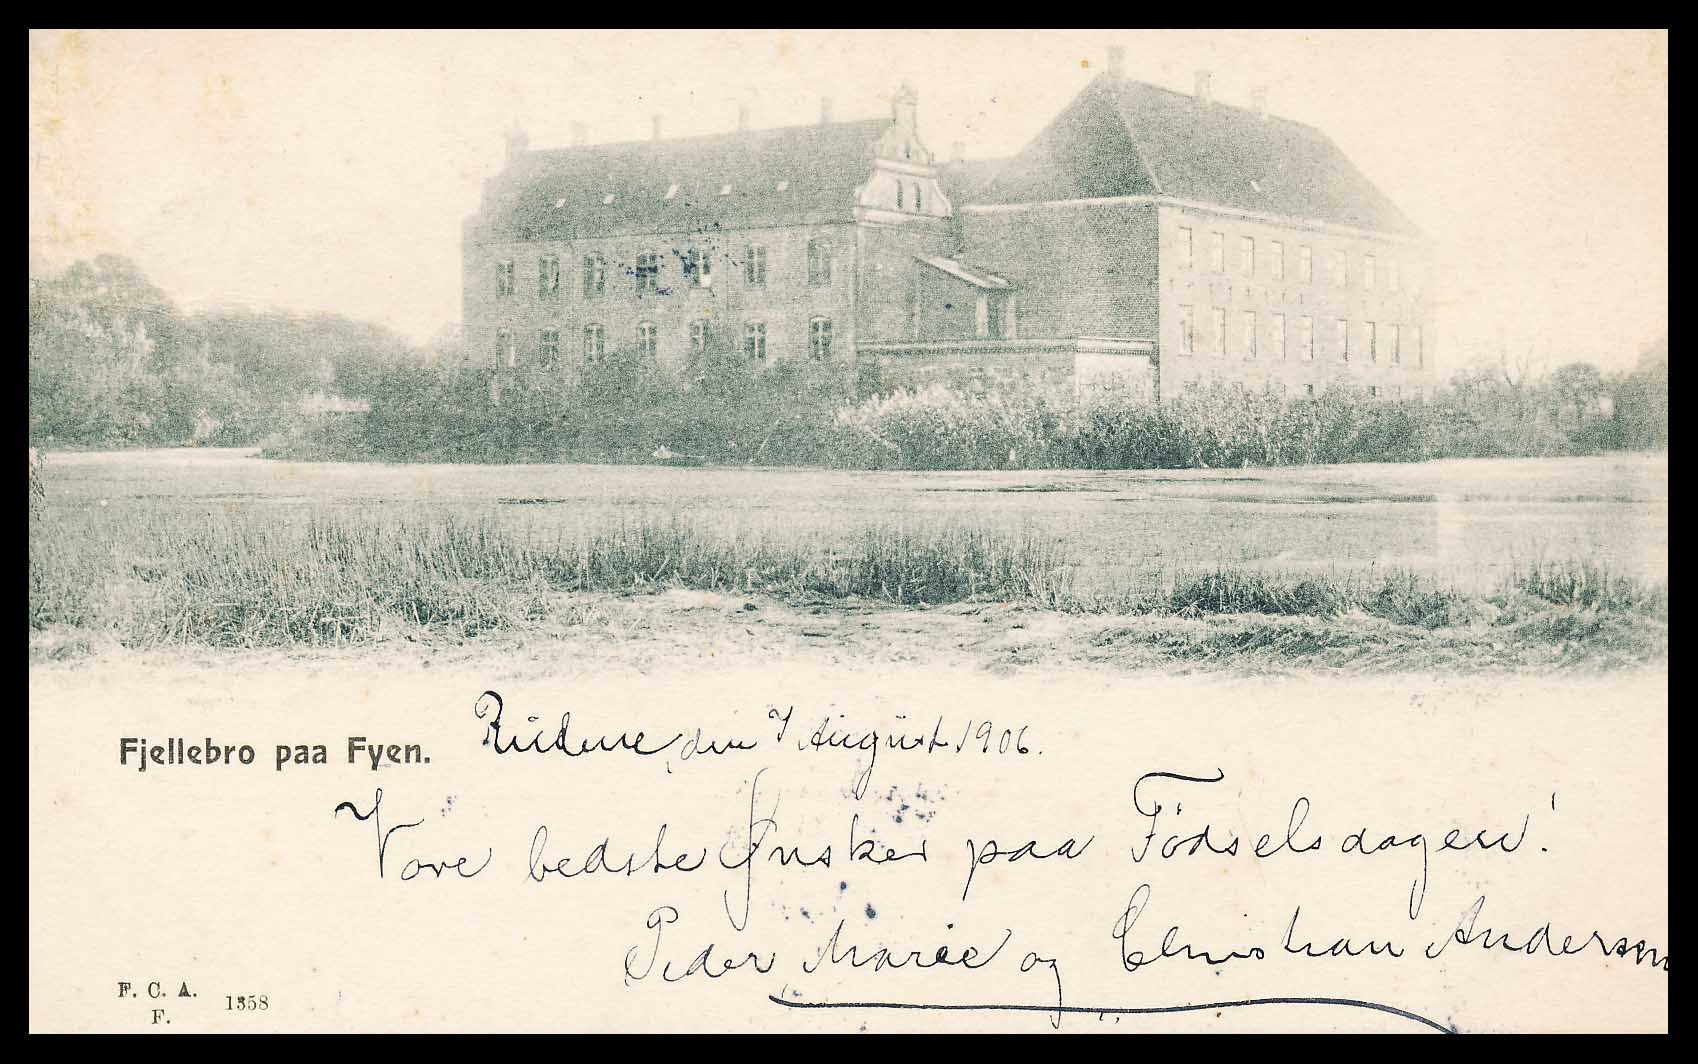 Fjellebro paa Fyen.
Rudme, den 7 August 1906.
Vore bedste Ønsker paa Födselsdagen!
Peder, Marie og Christian Andersen
F. C. A. 1358
F.